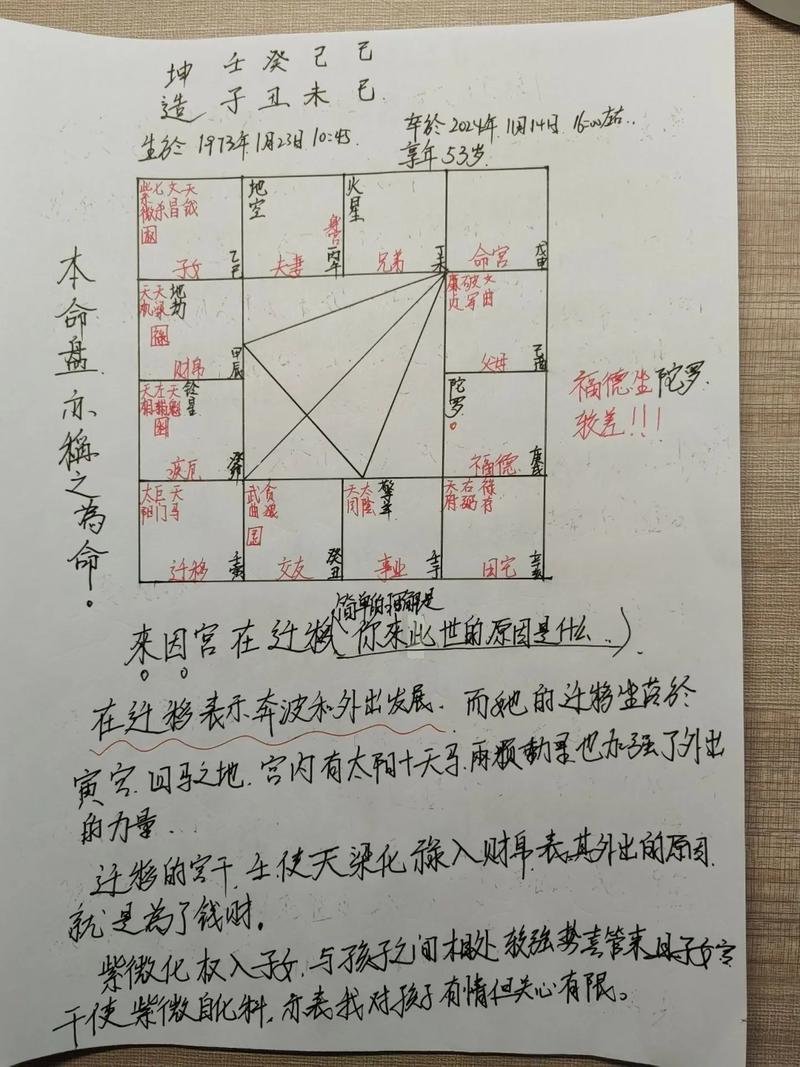 坤 壬 癸 己 己
造 子 丑 未 巳
生於 1973年1月23日 10:45.
卒於2024年11月14日 16:00左右..
享年53岁
本命盘亦稱之為命.
紫微 七杀 文昌 天钺
权
子女 乙巳
地空
夫妻 丙午
火星
兄弟 丁未
命宫 戊申
天机 天梁 地劫
禄
财帛 甲辰
廉贞 破军 文曲
父母 乙酉
天相 左辅 天魁 铃星
疾厄 癸卯
陀罗
福德 庚戌
福德坐陀罗.
较差!!!
太阳 巨门 天马
迁移 壬寅
武曲 贪狼
忌
交友 癸丑
天同 太阴 擎羊
事业 壬子
天府 右弼 禄存
田宅 辛亥
简单的理解是
来因宫在迁移(你来此世的原因是什么..)
在迁移表示奔波和外出发展.而她的迁移坐落於
寅宫.四马之地.宫内有太阳十天马.兩颗動星也加强了外出
的力量.
迁移的宫干.壬使天梁化禄入财帛.表其外出的原因.
就是為了钱财。
紫微化权入子女.与孩子之间相处较强势喜管束.且子女宫
干使紫微自化科,亦表我对孩子有情但关心有限。